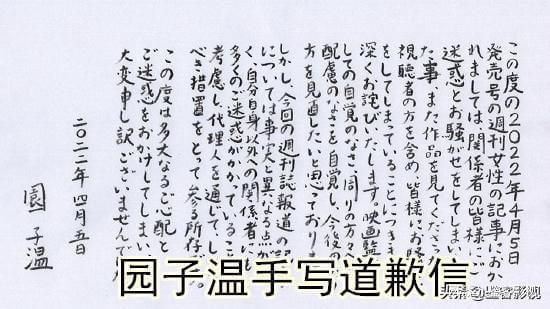 この度の2022年4月5日
発売号の週刊女性の記事におか
れましては、関係者の皆様にご
迷惑とお騒がせをしてしまい
た事、また作品を見てくださっ
視聴者の方を含め、皆様にお
をしてしまっていることにつきま
深くお詫びいたします。映画監
しての自覚のなさ、周りの方々へ
配慮のなさを自覚し、今後の
方を見直したいと思っておりま
しかし、今回の週刊誌報道の記
については事実と異なる点が
く、自分自身以外の関係者にも
多くのご迷惑がかかっていること
考慮し、代理人を通じて、し
べき措置をとって参る所存で
この度は多大なるご心配と
ご迷惑をおかけしてしまい
大変申し訳ございませんで
二〇二二年 四月五日
園 子温
园子温手写道歉信
头条 @鉴客影视